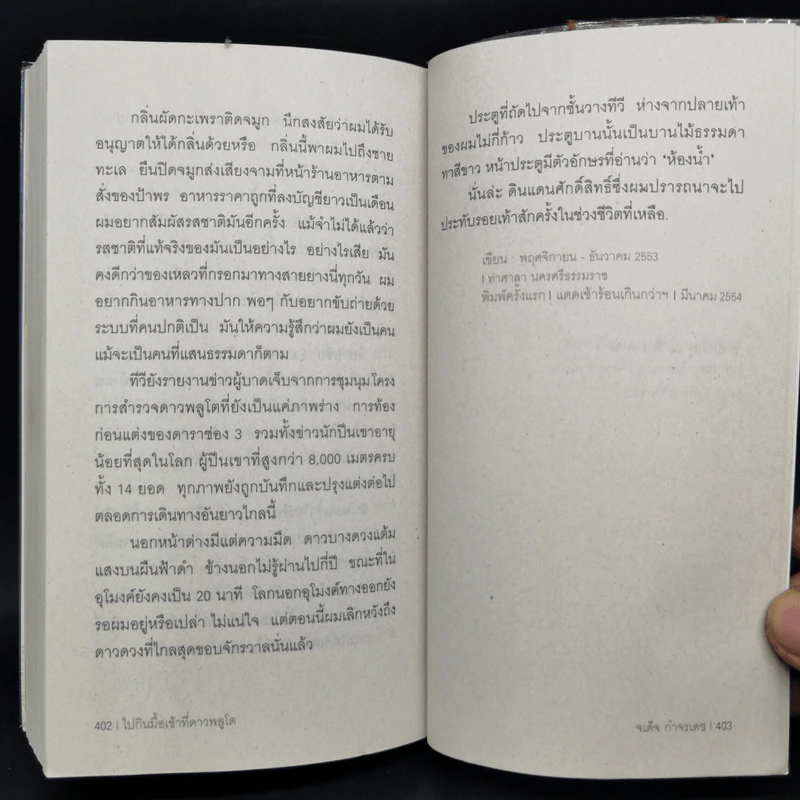 กลิ่นผัดกะเพราติดจมูก นึกสงสัยว่าผมได้รับ
อนุญาตให้ได้กลิ่นด้วยหรือ กลิ่นนี้พาผมไปถึงชาย
ทะเล ยืนปิดจมูกส่งเสียงจามที่หน้าร้านอาหารตาม
สั่งของป้าพร อาหารราคาถูกที่ลงบัญชียาวเป็นเดือน
ผมอยากสัมผัสรสชาติมันอีกครั้ง แม้จำไม่ได้แล้วว่า
รสชาติที่แท้จริงของมันเป็นอย่างไร อย่างไรเสีย มัน
คงดีกว่าของเหลวที่กรอกมาทางสายยางนี่ทุกวัน ผม
อยากกินอาหารทางปาก พอๆ กับอยากขับถ่ายด้วย
ระบบที่คนปกติเป็น มันให้ความรู้สึกว่าผมยังเป็นคน
แม้จะเป็นคนที่แสนธรรมดาก็ตาม
ทีวียังรายงานข่าวผู้บาดเจ็บจากการชุมนุมโครง
การสำรวจดาวพลูโตที่ยังเป็นแค่ภาพร่าง การท้อง
ก่อนแต่งของดาราช่อง 3 รวมทั้งข่าวนักปีนเขาอายุ
น้อยที่สุดในโลก ผู้ปีนเขาที่สูงกว่า 8,000 เมตรครบ
ทั้ง 14 ยอด ทุกภาพยังถูกบันทึกและปรุงแต่งต่อไป
ตลอดการเดินทางอันยาวไกลนี้
นอกหน้าต่างมีแต่ความมืด ดาวบางดวงแต้ม
แสงบนผืนฟ้าดำ ข้างนอกไม่รู้ผ่านไปกี่ปี ขณะที่ใน
อุโมงค์ยังคงเป็น 20 นาที โลกนอกอุโมงค์ทางออกยัง
รอผมอยู่หรือเปล่า ไม่แน่ใจ แต่ตอนนี้ผมเลิกหวังถึง
ดาวดวงที่ไกลสุดขอบจักรวาลนั่นแล้ว
402 | ไปกินมื้อเช้าที่ดาวพลูโต
ประตูที่ถัดไปจากชั้นวางทีวี ห่างจากปลายเท้า
ของผมไม่กี่ก้าว ประตูบานนั้นเป็นบานไม้ธรรมดา
ทาสีขาว หน้าประตูมีตัวอักษรที่อ่านว่า ‘ห้องน้ำ’
นั่นล่ะ ดินแดนศักดิ์สิทธิ์ซึ่งผมปรารถนาจะไป
ประทับรอยเท้าสักครั้งในช่วงชีวิตที่เหลือ.
เขียน : พฤศจิกายน - ธันวาคม 2553
| ท่าศาลา นครศรีธรรมราช
พิมพ์ครั้งแรก | แดดเช้าร้อนเกินกว่าฯ | มีนาคม 2554
จเด็จ กำจรเดช | 403